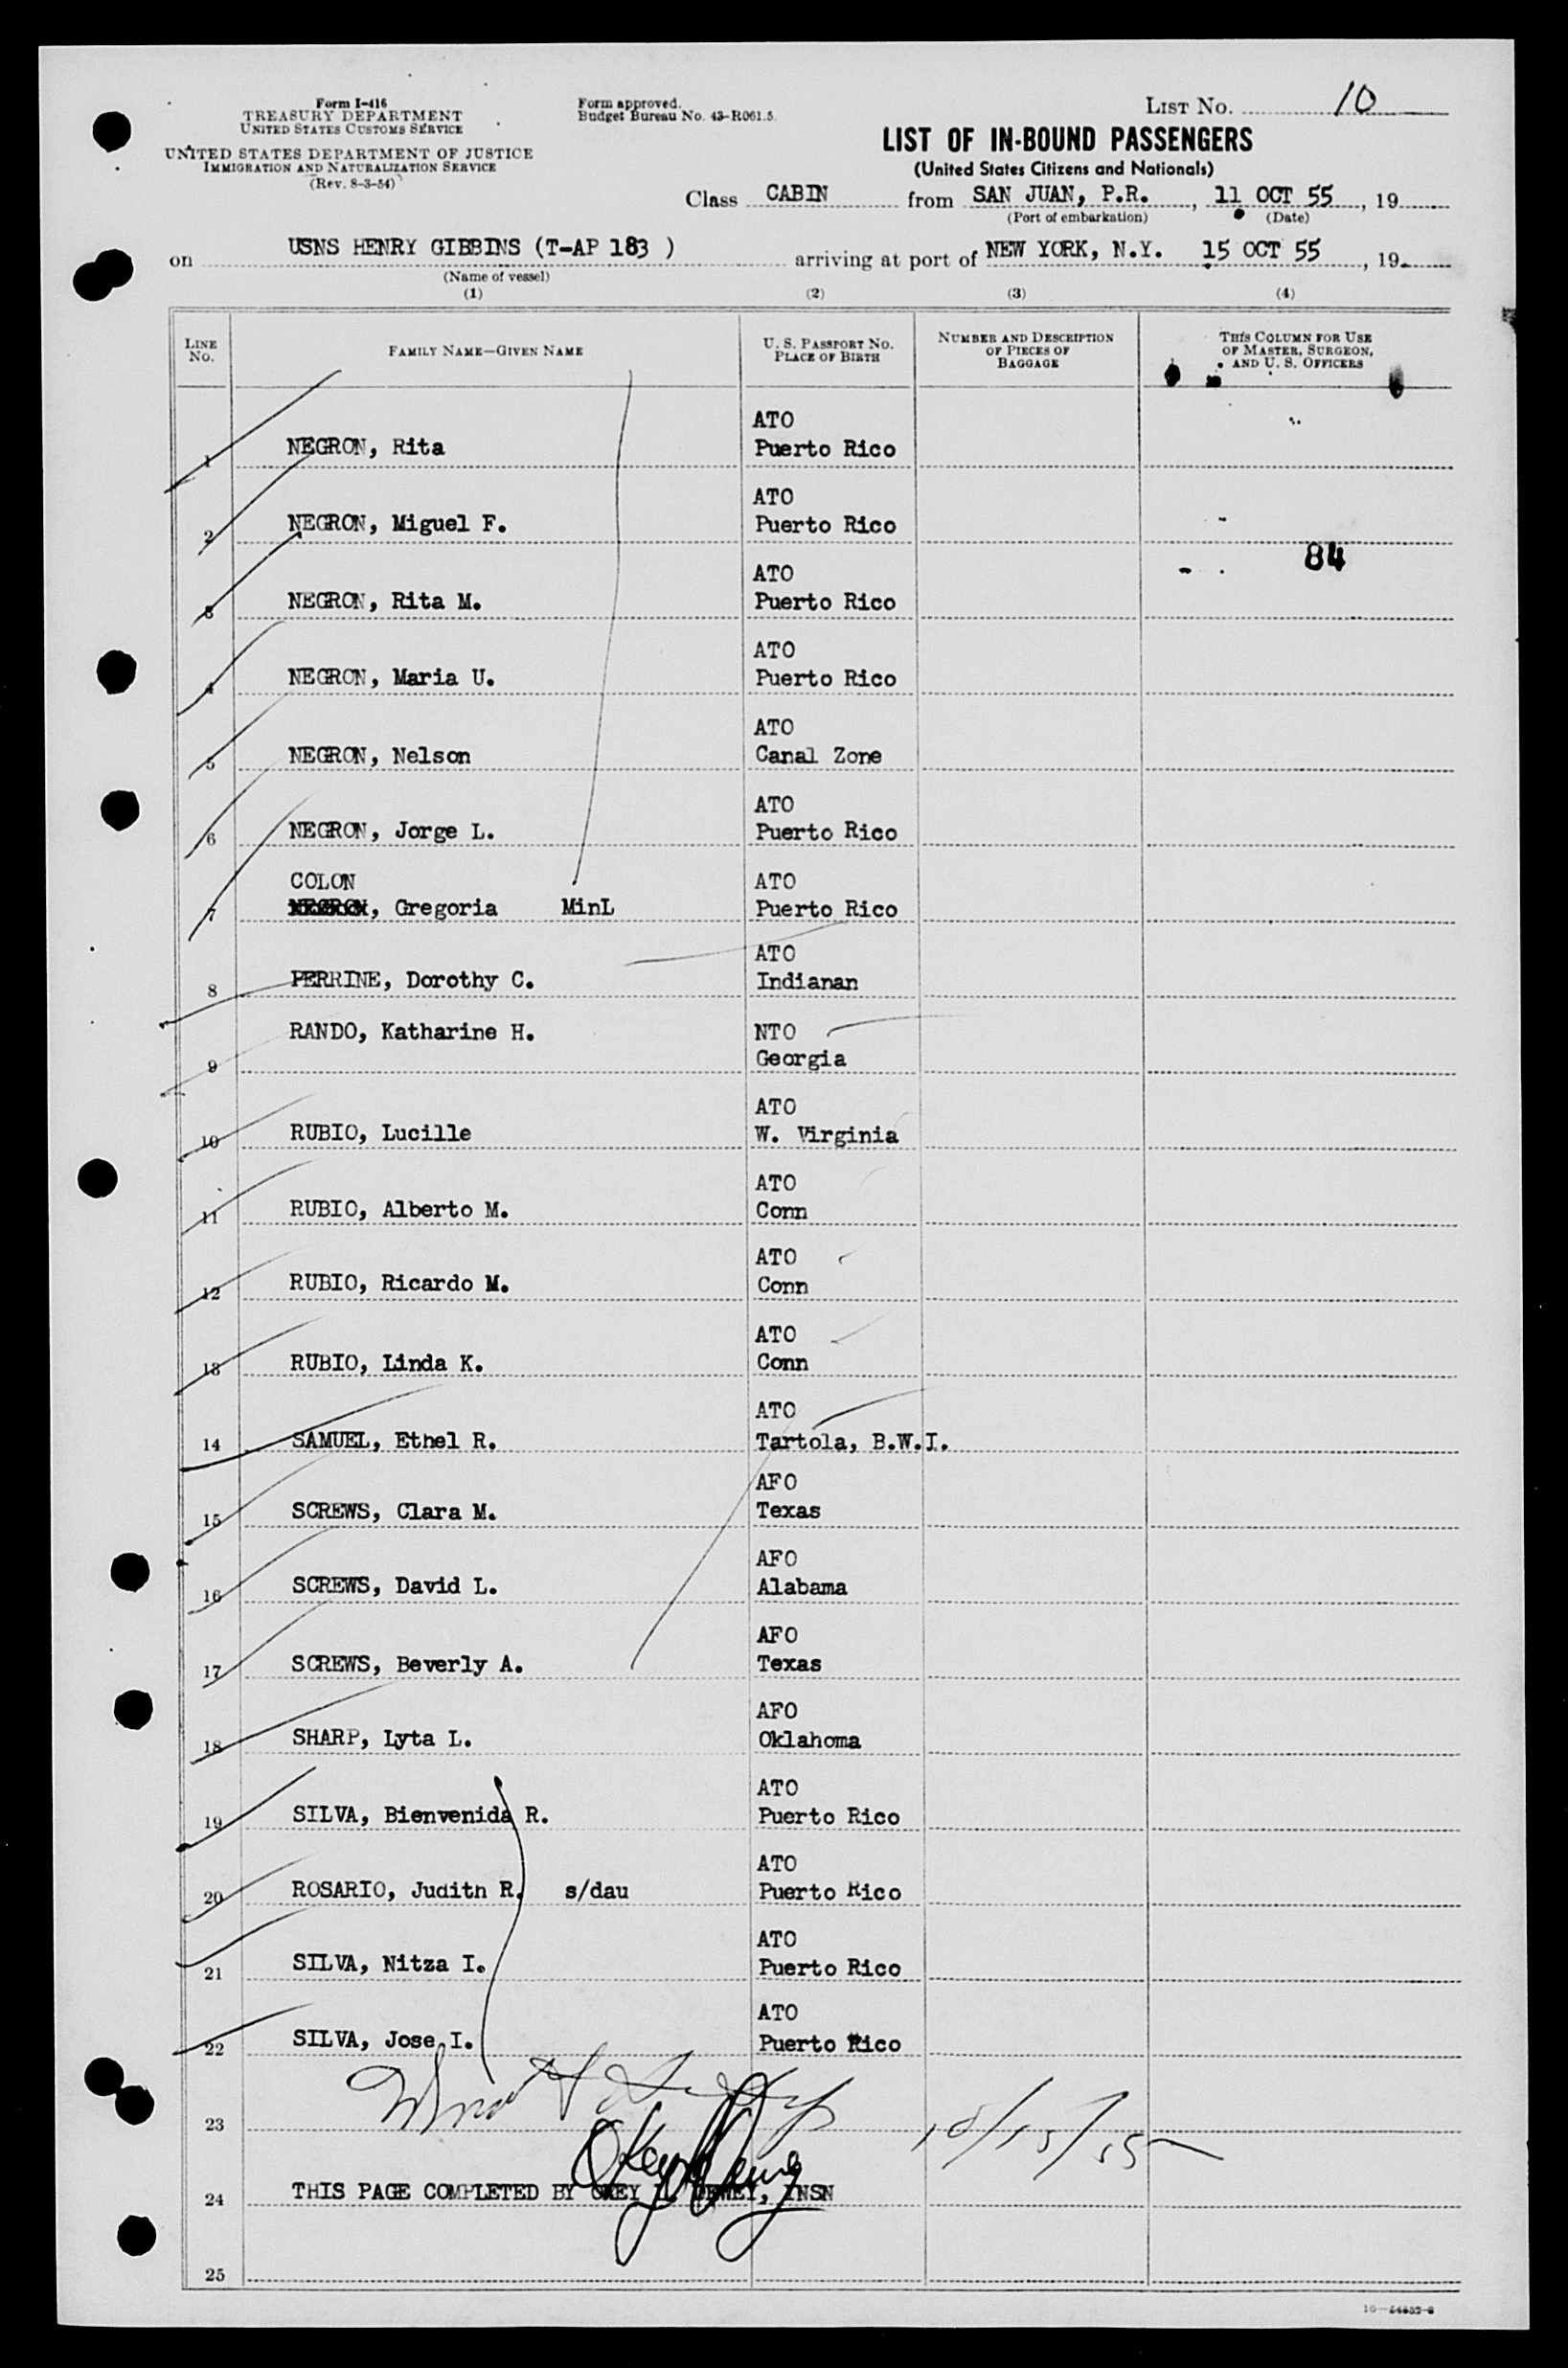 Form I-416
TREASURY DEPARTMENT
UNITED STATES CUSTOMS SERVICE
UNITED STATES DEPARTMENT OF JUSTICE
IMMIGRATION AND NATURALIZATION SERVICE
(Rev. 8-3-54)
Form approved.
Budget Bureau No. 43-R061.5
LIST NO. 10
LIST OF IN-BOUND PASSENGERS
(United States Citizens and Nationals)
Class CABIN from SAN JUAN, P.R., 11 OCT 55, 19
(Port of embarkation) (Date)
on USNS HENRY GIBBINS (T-AP 183 ) arriving at port of NEW YORK, N.Y. 15 OCT 55, 19
(Name of vessel)
(1) (2) (3) (4)
LINE NO. FAMILY NAME—GIVEN NAME U. S. PASSPORT NO. PLACE OF BIRTH NUMBER AND DESCRIPTION OF PIECES OF BAGGAGE THIS COLUMN FOR USE OF MASTER, SURGEON, AND U. S. OFFICERS
ATO
1 NEGRON, Rita Puerto Rico
ATO
2 NEGRON, Miguel F. Puerto Rico
84
ATO
3 NEGRON, Rita M. Puerto Rico
ATO
4 NEGRON, Maria U. Puerto Rico
ATO
5 NEGRON, Nelson Canal Zone
ATO
6 NEGRON, Jorge L. Puerto Rico
COLON ATO
7 NEGRON, Gregoria MinL Puerto Rico
ATO
8 PERRINE, Dorothy C. Indianan
RANDO, Katharine H. NTO
9 Georgia
ATO
10 RUBIO, Lucille W. Virginia
ATO
11 RUBIO, Alberto M. Conn
ATO
12 RUBIO, Ricardo M. Conn
ATO
13 RUBIO, Linda K. Conn
ATO
14 SAMUEL, Ethel R. Tartola, B.W.I.
AFO
15 SCREWS, Clara M. Texas
AFO
16 SCREWS, David L. Alabama
AFO
17 SCREWS, Beverly A. Texas
AFO
18 SHARP, Lyta L. Oklahoma
ATO
19 SILVA, Bienvenida R. Puerto Rico
ATO
20 ROSARIO, Judith R. s/dau Puerto Rico
ATO
21 SILVA, Nitza I. Puerto Rico
ATO
22 SILVA, Jose I. Puerto Rico
23 10/15/55
24 THIS PAGE COMPLETED BY OKEY DEWEY, INSN
25